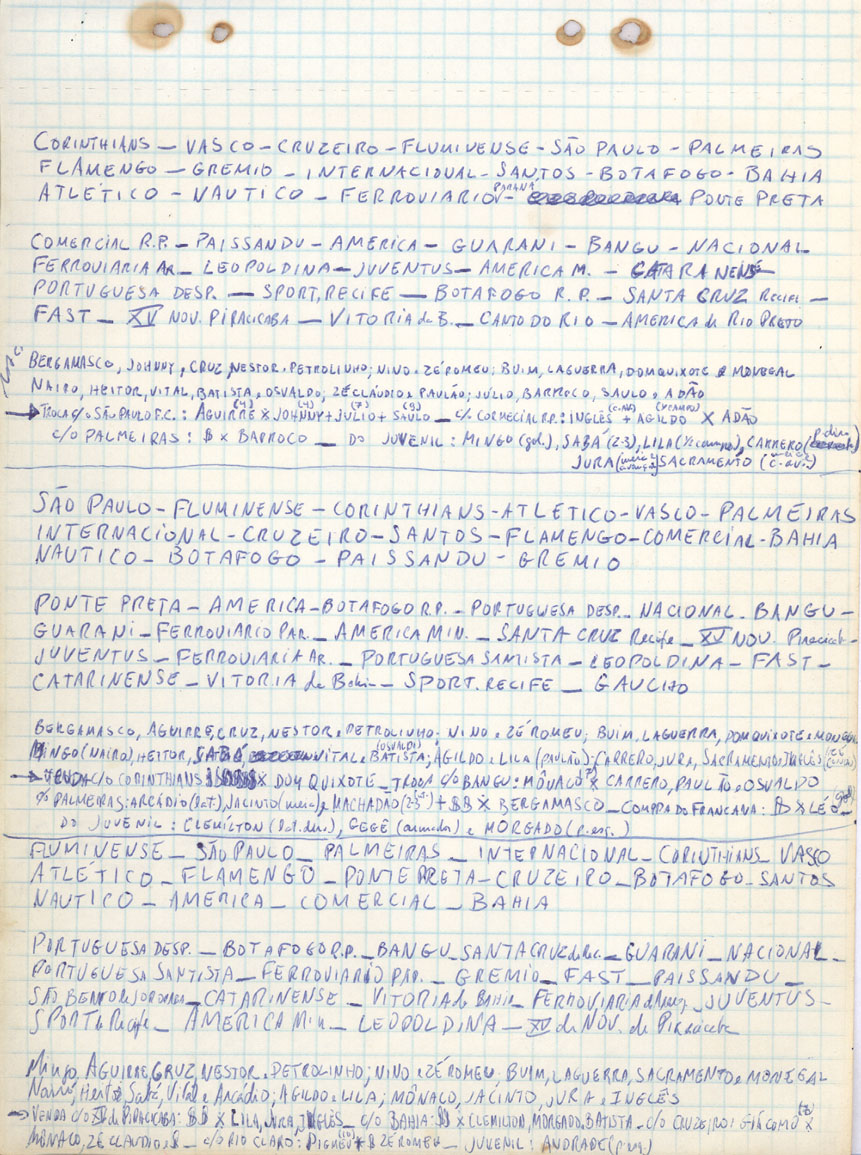 CORINTHIANS - VASCO - CRUZEIRO - FLUMINENSE - SÃO PAULO - PALMEIRAS
FLAMENGO - GREMIO - INTERNACIONAL - SANTOS - BOTAFOGO - BAHIA
ATLÉTICO - NAUTICO - FERROVIARIO PARANÁ - PONTE PRETA
COMERCIAL R.P. - PAISSANDU - AMERICA - GUARANI - BANGU - NACIONAL
FERROVIARIA AR. - LEOPOLDINA - JUVENTUS - AMERICA M. - CATARINENSE -
PORTUGUESA DESP. - SPORT, RECIFE - BOTAFOGO R.P. - SANTA CRUZ Recife -
FAST - XV NOV. PIRACICABA - VITORIA da B. - CANTO DO RIO - AMERICA de RIO PRETO
BERGAMASCO, JOHNNY, CRUZ, NESTOR e PETROLINHO; NINO e ZÉ ROMEU; BUIM, LAGUERRA, DOM QUIXOTE e MONEGAL
NAIRO, HEITOR, VITAL, BATISTA e OSVALDO; ZÉ CLÁUDIO e PAULÃO; JÚLIO, BARROCO, SAULO e ADÃO
TROCA c/o SÃO PAULO F.C.: AGUIRRE (4) X JOHNNY (4) + JÚLIO (7) + SAULO (9) - c/o COMERCIAL R.P.: INGLÊS + AGILDO X ADÃO
c/o PALMEIRAS: $ X BARROCO - DO JUVENIL: MINGO (gol.), SABÁ (2-3), LILA (½ campo), CARRERO (p. dir.)
JURA SACRAMENTO
SÃO PAULO - FLUMINENSE - CORINTHIANS - ATLÉTICO - VASCO - PALMEIRAS
INTERNACIONAL - CRUZEIRO - SANTOS - FLAMENGO - COMERCIAL - BAHIA
NAUTICO - BOTAFOGO - PAISSANDU - GREMIO
PONTE PRETA - AMERICA - BOTAFOGO R.P. - PORTUGUESA DESP. - NACIONAL - BANGU -
GUARANI - FERROVIÁRIO PAR. - AMERICA MIN. - SANTA CRUZ Recife - XV NOV. Piracicaba -
JUVENTUS - FERROVIARIA AR. - PORTUGUESA SANTISTA - LEOPOLDINA - FAST -
CATARINENSE - VITORIA da Bahia - SPORT. RECIFE - GAUCHO
BERGAMASCO, AGUIRRE, CRUZ, NESTOR e PETROLINHO; NINO e ZÉ ROMEU; BUIM, LAGUERRA, DOM QUIXOTE e MONEGAL
MINGO (NAIRO), HEITOR, SABÁ, VITAL e BATISTA (OSVALDO); AGILDO e LILA (PAULÃO); CARRERO, JURA, SACRAMENTO e INGLÊS
VENDA c/o CORINTHIANS X DOM QUIXOTE - TROCA c/o BANGU: MÔNACO X CARRERO, PAULÃO e OSVALDO
c/o PALMEIRAS: ARCÁDIO (lat.), JACINTO (meia), e MACHADÃO + $$ X BERGAMASCO - COMPRA DO FRANCANA: $ X LÉO (gol)
DO JUVENIL: CLEMILTON (lat. dir.), GEGÊ (armador) e MORGADO (p. esq.)
FLUMINENSE - SÃO PAULO - PALMEIRAS - INTERNACIONAL - CORINTHIANS - VASCO
ATLÉTICO - FLAMENGO - PONTE PRETA - CRUZEIRO - BOTAFOGO - SANTOS
NAUTICO - AMERICA - COMERCIAL - BAHIA
PORTUGUESA DESP. - BOTAFOGO R.P. - BANGU - SANTA CRUZ de Rec. - GUARANI - NACIONAL -
PORTUGUESA SANTISTA - FERROVIARIO PAR. - GREMIO - FAST - PAISSANDU -
SÃO BENTO - CATARINENSE - VITORIA da Bahia - FERROVIARIA - JUVENTUS -
SPORT de Recife - AMERICA Min - LEOPOLDINA - XV de NOV. de Piracicaba
Mingo, AGUIRRE, CRUZ, NESTOR e PETROLINHO; NINO e ZÉ ROMEU; BUIM, LAGUERRA, SACRAMENTO e MONEGAL
Nairo, Heitor, Sabá, Vital e Arcádio; AGILDO e LILA; MÔNACO, JACINTO, JURA e INGLÊS
VENDA c/o XV de PIRACICABA: $$ X LILA, JURA, INGLÊS - c/o BAHIA: $$ X CLEMILTON, MORGADO, BATISTA - c/o CRUZEIRO: GIÁCOMO X
MÔNACO, ZÉ CLAUDIO e $ - c/o RIO CLARO: PIGMEU + $ ZÉ ROMEU - JUVENIL: ANDRADE